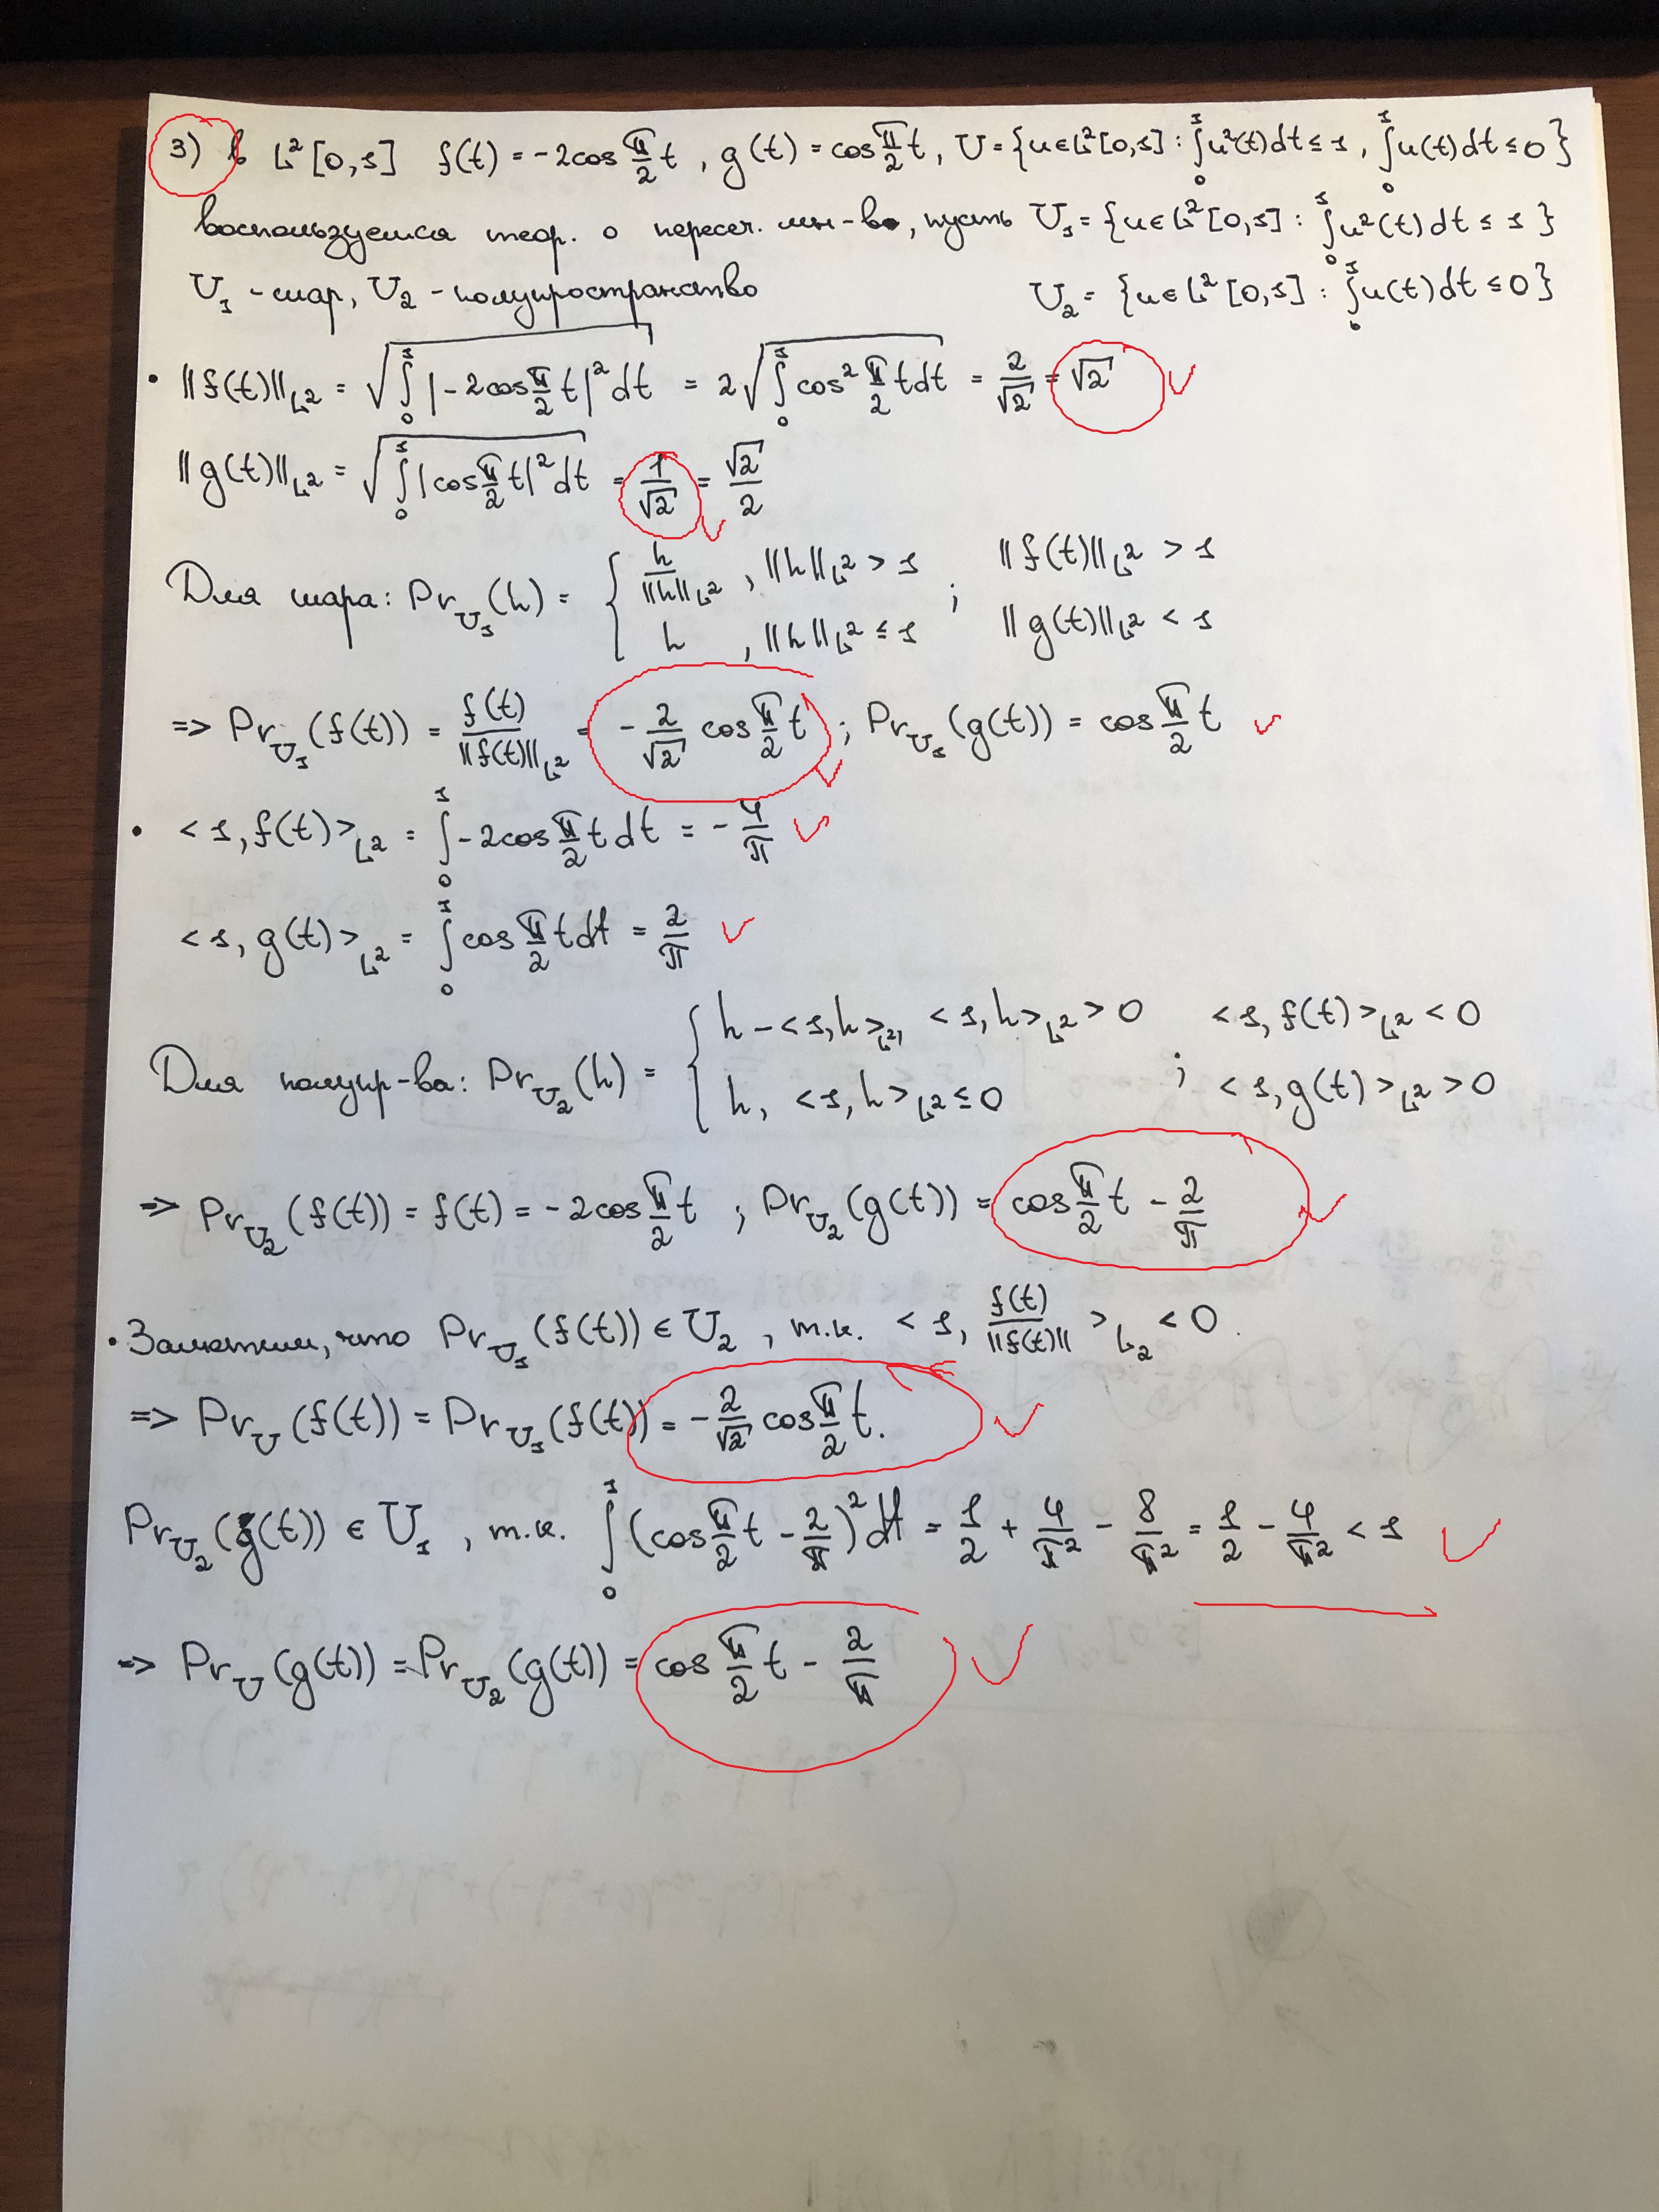 3) в L²[0,1] f(t) = -2cos π/2 t, g(t) = cos π/2 t, U = {u∈L²[0,1] : ∫₀¹ u²(t)dt ≤ 1, ∫₀¹ u(t)dt ≤ 0}
воспользуемся теор. о пересеч. мн-во, пусть U₁ = {u∈L²[0,1] : ∫₀¹ u²(t)dt ≤ 1}
U₁ - шар, U₂ - полупространство U₂ = {u∈L²[0,1] : ∫₀¹ u(t)dt ≤ 0}
• ||f(t)||_L² = √(∫₀¹ |-2cos π/2 t|² dt) = 2√(∫₀¹ cos² π/2 t dt) = 2/√2 = √2
||g(t)||_L² = √(∫₀¹ |cos π/2 t|² dt) = 1/√2 = √2/2
Для шара: Pr_U₁(h) = { h/||h||_L², ||h||_L² > 1 ; ||f(t)||_L² > 1
h, ||h||_L² ≤ 1 ||g(t)||_L² < 1
=> Pr_U₁(f(t)) = f(t)/||f(t)||_L² = -2/√2 cos π/2 t ; Pr_U₁(g(t)) = cos π/2 t
• <1, f(t)>_L² = ∫₀¹ -2cos π/2 t dt = -4/π
<1, g(t)>_L² = ∫₀¹ cos π/2 t dt = 2/π
Для полупр-ва: Pr_U₂(h) = { h - <1, h>_L², <1, h>_L² > 0 ; <1, f(t)>_L² < 0
h, <1, h>_L² ≤ 0 <1, g(t)>_L² > 0
=> Pr_U₂(f(t)) = f(t) = -2cos π/2 t ; Pr_U₂(g(t)) = cos π/2 t - 2/π
• Заметим, что Pr_U₁(f(t)) ∈ U₂, т.к. <1, f(t)/||f(t)||>_L₂ < 0.
=> Pr_U(f(t)) = Pr_U₁(f(t)) = -2/√2 cos π/2 t.
Pr_U₂(g(t)) ∈ U₁, т.к. ∫₀¹ (cos π/2 t - 2/π)² dt = 1/2 + 4/π² - 8/π² = 1/2 - 4/π² < 1
=> Pr_U(g(t)) = Pr_U₂(g(t)) = cos π/2 t - 2/π